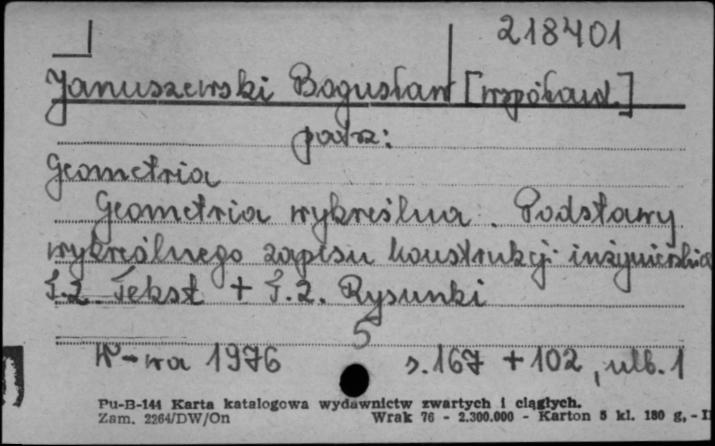 218401
Januszewski Bogusław [współaut.]
patrz:
Geometria
Geometria wykreślna. Podstawy
wykreślnego zapisu konstrukcji inżynierskich
T.1. Tekst + T.2. Rysunki
5
W-wa 1976 s. 167 + 102, nlb. 1
Pu-B-144 Karta katalogowa wydawnictw zwartych i ciągłych.
Zam. 2264/DW/On Wrak 76 - 2.300.000 - Karton 5 kl. 180 g, - II